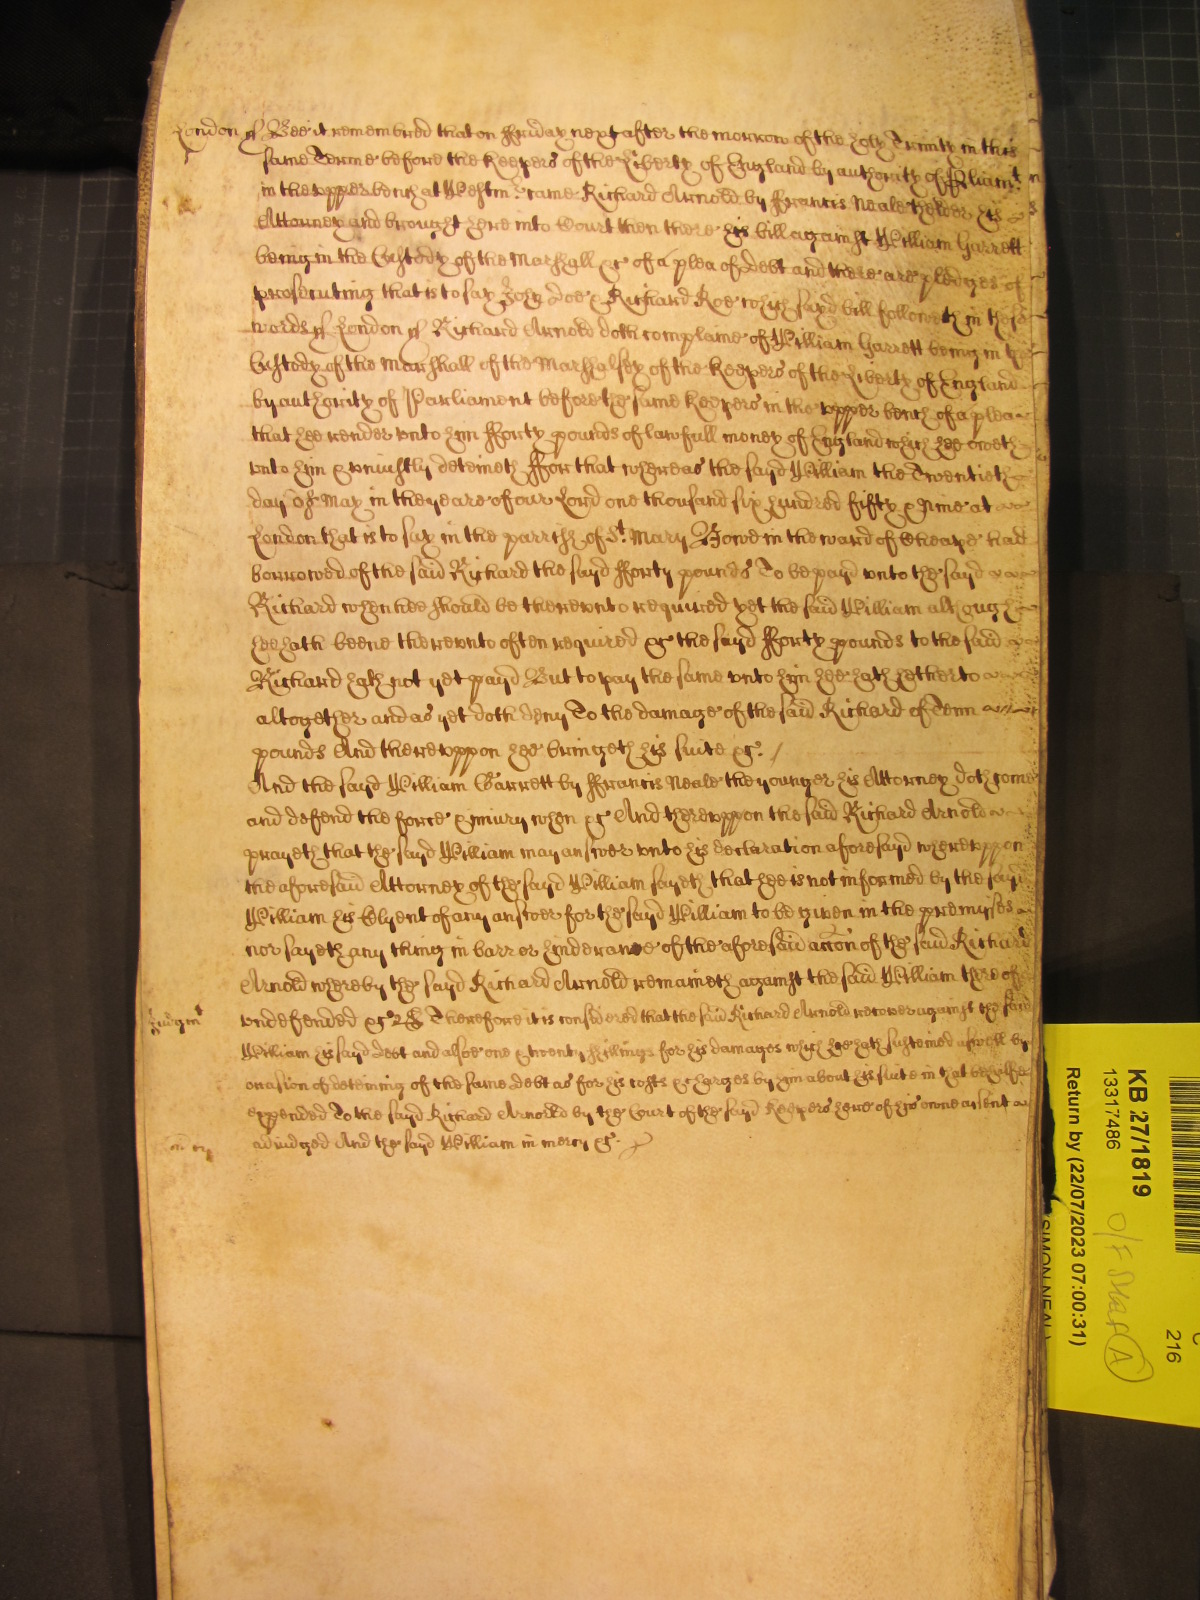 London ss Bee it remembred that on Ffriday next after the morrow of the holy Trinity in this
same Terme before the Keepers of the Liberty of England by authority of Parliamt
in the upper bench at Westm: came Richard Arnold by Ffrancis Neale the elder his
Attorney and brought here into Court then there his bill against William Garrett
being in the Custody of the Marshall &c of a plea of Debt and there are pledges of
prosecuting that is to say John Doe & Richard Roe which sayd bill followeth in these
words ss London ss Richard Arnold doth complaine of William Garrett being in the
Custody of the Marshall of the Marshalsey of the Keepers of the Liberty of England
by authority of Parliament before the same Keepers in the upper bench of a plea
that hee render unto him Fforty pounds of lawfull money of England which hee oweth
unto him & uniustly deteineth Ffor that whereas the sayd William the Twentieth
day of May in the yeare of our Lord one thousand six hundred fifty & Nine at
London that is to say in the parrish of St. Mary Bowe in the ward of Cheape had
borrowed of the said Richard the sayd Fforty pounds To be payd unto the sayd
Richard when hee should be thereunto required yet the said William although
hee hath beene thereunto often required &c the sayd Fforty pounds to the said
Richard hath not yet payd But to pay the same unto him hee hath hetherto
altogether and as yet doth deny To the damage of the said Richard of Tenn
pounds And thereuppon hee bringeth his suite &c.
And the sayd William Garrett by Ffrancis Neale the younger his Attorney doth come
and defend the force & iniury when &c And thereuppon the said Richard Arnold
prayeth that the sayd William may answer unto his declaration aforesayd whereuppon
the aforesaid Attorney of the sayd William sayeth that hee is not informed by the sayd
William his Clyent of any answer for the sayd William to be given in the premisses
nor sayeth any thing in barr or hinderance of the aforesaid accon of the said Richard
Arnold whereby the sayd Richard Arnold remaineth against the said William thereof
Judgmt undefended &c Therefore it is considered that the said Richard Arnold recover against the said
William his sayd debt and alsoe one & twenty shillings for his damages which hee hath susteined aswell by
occasion of deteining of the same debt as for his costs & charges by him about his suite in that behalfe
expended To the sayd Richard Arnold by the Court of the sayd Keepers here of his owne assent
adiudged And the sayd William in mercy &c.
KB 27/1819
13317486
Return by (22/07/2023 07:00:31)
SIMON NEAL
216
A